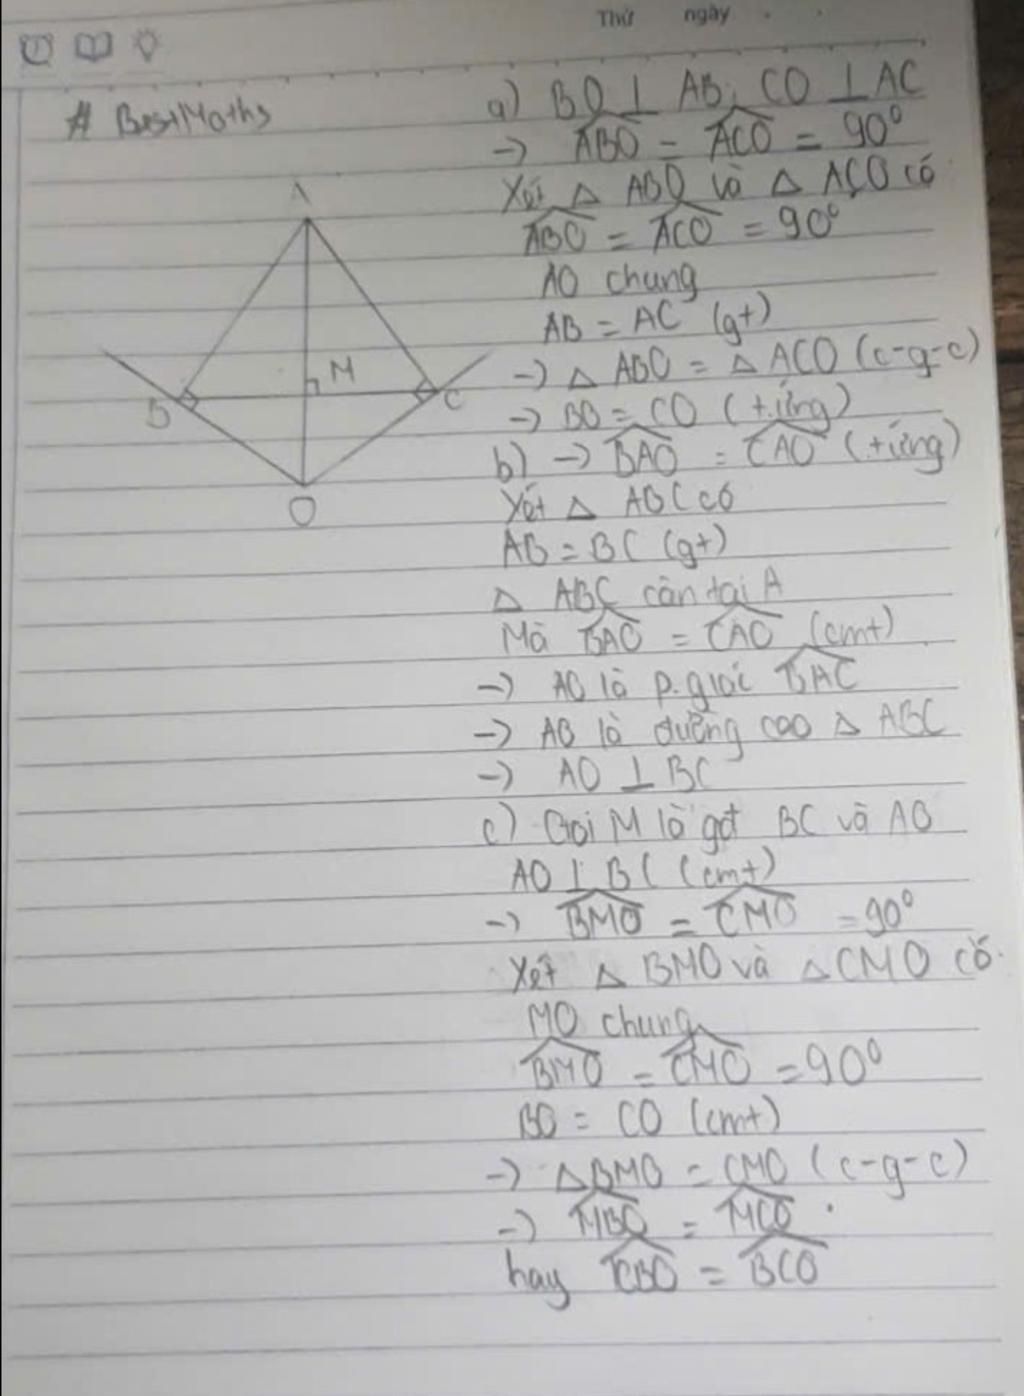 Thứ ngày
# BestMaths
A
M
B
C
O
a) BO ⊥ AB, CO ⊥ AC
-> \widehat{ABO} = \widehat{ACO} = 90°
Xét △ ABO và △ ACO có
\widehat{ABO} = \widehat{ACO} = 90°
AO chung
AB = AC (gt)
-> △ ABO = △ ACO (c-g-c)
-> BO = CO (t.ứng)
b) -> \widehat{BAO} = \widehat{CAO} (t.ứng)
Xét △ ABC có
AB = BC (gt)
△ ABC cân tại A
Mà \widehat{BAO} = \widehat{CAO} (cmt)
-> AO là p.giác \widehat{BAC}
-> AO là đường cao △ ABC
-> AO ⊥ BC
c) Gọi M là gđ BC và AO
AO ⊥ BC (cmt)
-> \widehat{BMO} = \widehat{CMO} = 90°
Xét △ BMO và △ CMO có
MO chung
\widehat{BMO} = \widehat{CMO} = 90°
BO = CO (cmt)
-> △BMO = CMO (c-g-c)
-> \widehat{MBO} = \widehat{MCO}
hay \widehat{CBO} = \widehat{BCO}